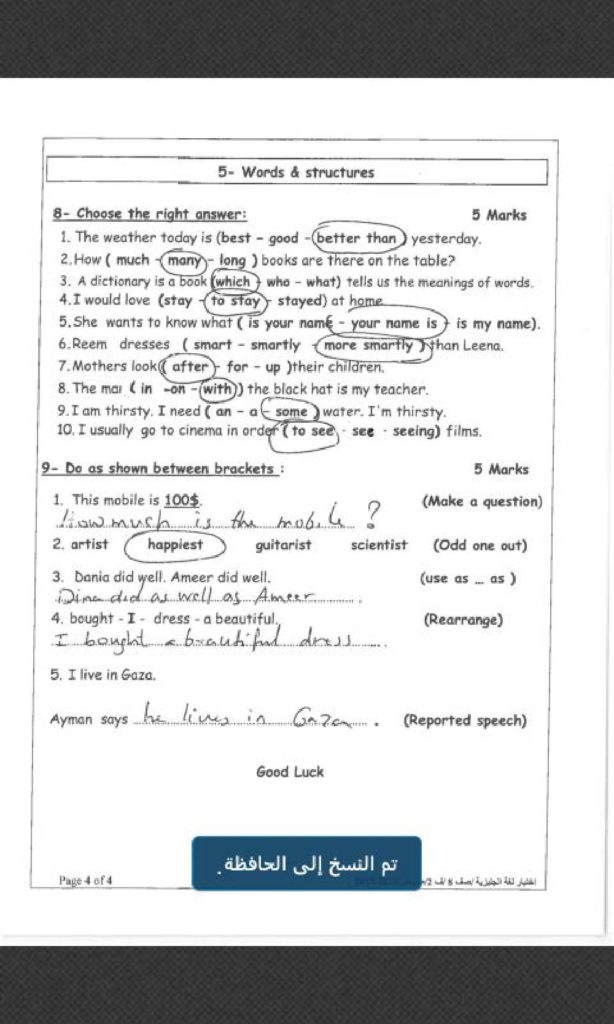 5- Words & structures
8- Choose the right answer: 5 Marks
1. The weather today is (best - good - better than) yesterday.
2. How ( much - many - long ) books are there on the table?
3. A dictionary is a book (which - who - what) tells us the meanings of words.
4. I would love (stay - to stay - stayed) at home
5. She wants to know what ( is your name - your name is - is my name).
6. Reem dresses ( smart - smartly - more smartly ) than Leena.
7. Mothers look( after - for - up )their children.
8. The ( in -on - with) the black hat is my teacher.
9. I am thirsty. I need ( an - a - some ) water. I'm thirsty.
10. I usually go to cinema in order ( to see - see - seeing) films.
9- Do as shown between brackets : 5 Marks
1. This mobile is 100$. (Make a question)
How much is the mobile ?
2. artist happiest guitarist scientist (Odd one out)
3. Dania did well. Ameer did well. (use as ... as )
Dina did as well as Ameer
4. bought - I - dress - a beautiful. (Rearrange)
I bought a beautiful dress
5. I live in Gaza.
Ayman says he lives in Gaza. (Reported speech)
Good Luck
تم النسخ إلى الحافظة.
Page 4 of 4 اختبار لغة انجليزية/صف 8 /ف 2/